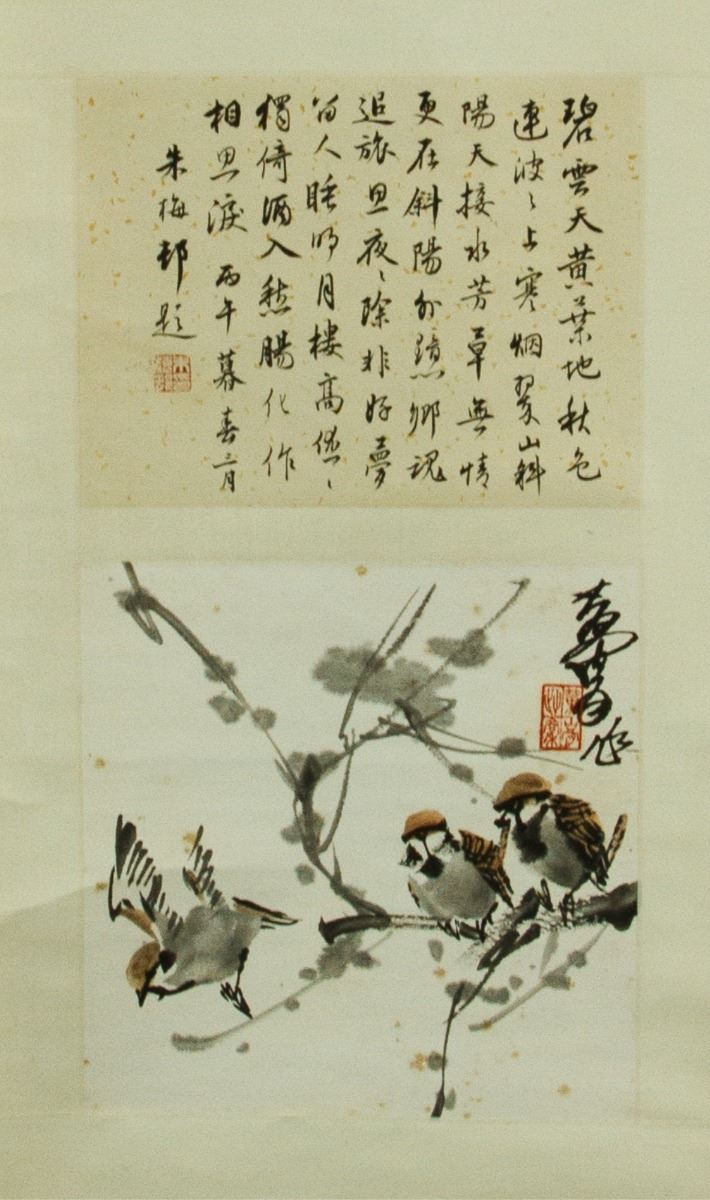 碧雲天黄葉地秋色
連波〻上寒烟翠山斜
陽天接水芳草無情
更在斜陽外黯鄉魂
追旅思夜〻除非好夢
留人睡明月樓高休〻
獨倚酒入愁腸化作
相思淚 丙午暮春三月
朱梅邨題
黃胄作